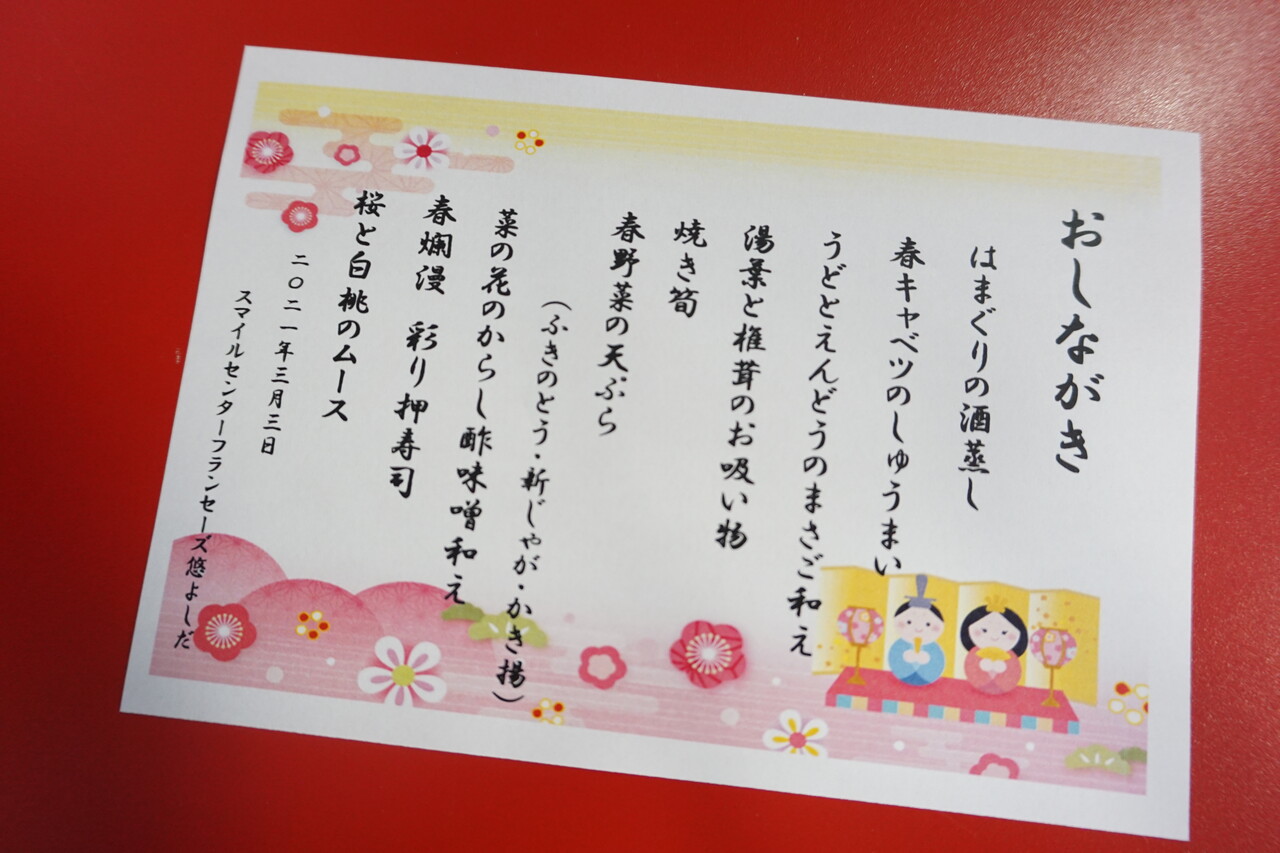 おしながき
はまぐりの酒蒸し
春キャベツのしゅうまい
うどとえんどうのまさご和え
湯葉と椎茸のお吸い物
焼き筍
春野菜の天ぷら
(ふきのとう・新じゃが・かき揚)
菜の花のからし酢味噌和え
春爛漫 彩り押寿司
桜と白桃のムース
二〇二一年三月三日
スマイルセンターフランセーズ悠よしだ